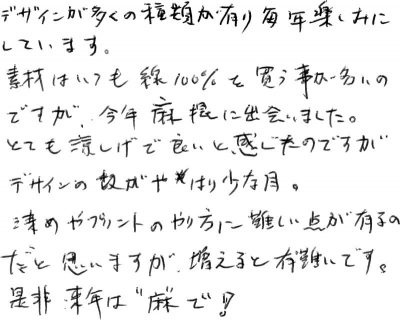 デザインが多くの種類が有り毎年楽しみに
しています。
素材はいつも綿100%を買う事が多いの
ですが、今年麻混に出会いました。
とても涼しげで良いと感じたのですが
デザインの数がやはり少な目。
染めやプリントのやり方に難しい点が有るの
だと思いますが、増えると有難いです。
是非来年は"麻"で!!